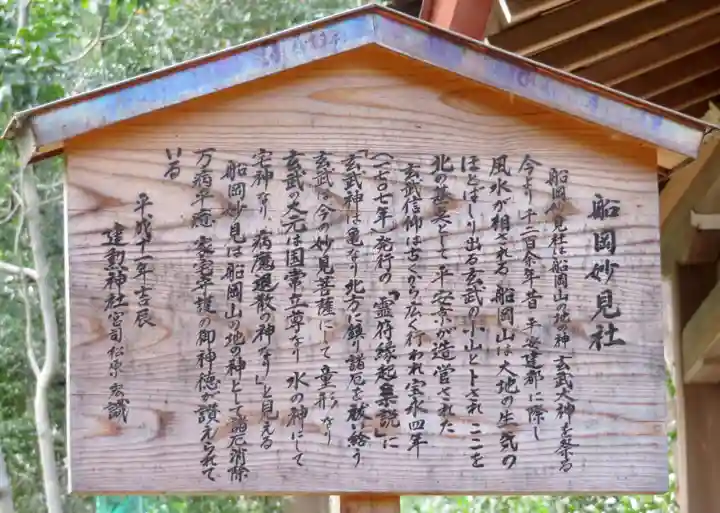 船岡妙見社
船岡妙見社は船岡山の地の神 玄武大神を祭る
今より千二百余年昔 平安建都に際し
風水が相される 船岡山は大地の生気の
ほとばしり出る玄武の小山と卜され ここを
北の基点として平安京が造営された
玄武信仰は古くから広く行われ 宝永四年
(一七〇七年)発行の「霊符縁起集説」に
「玄武神は亀なり 北方に鎮り諸厄を祓い給う
玄武は今の妙見菩薩にして童形なり
玄武の大元は国常立尊なり 水の神にして
宅神なり 病魔退散の神なり」と見える
船岡妙見は船岡山の地の神として諸厄消除
万病平癒 家宅守護の御神徳が讃えられて
いる
平成十一年吉辰
建勲神社宮司松原宏誠